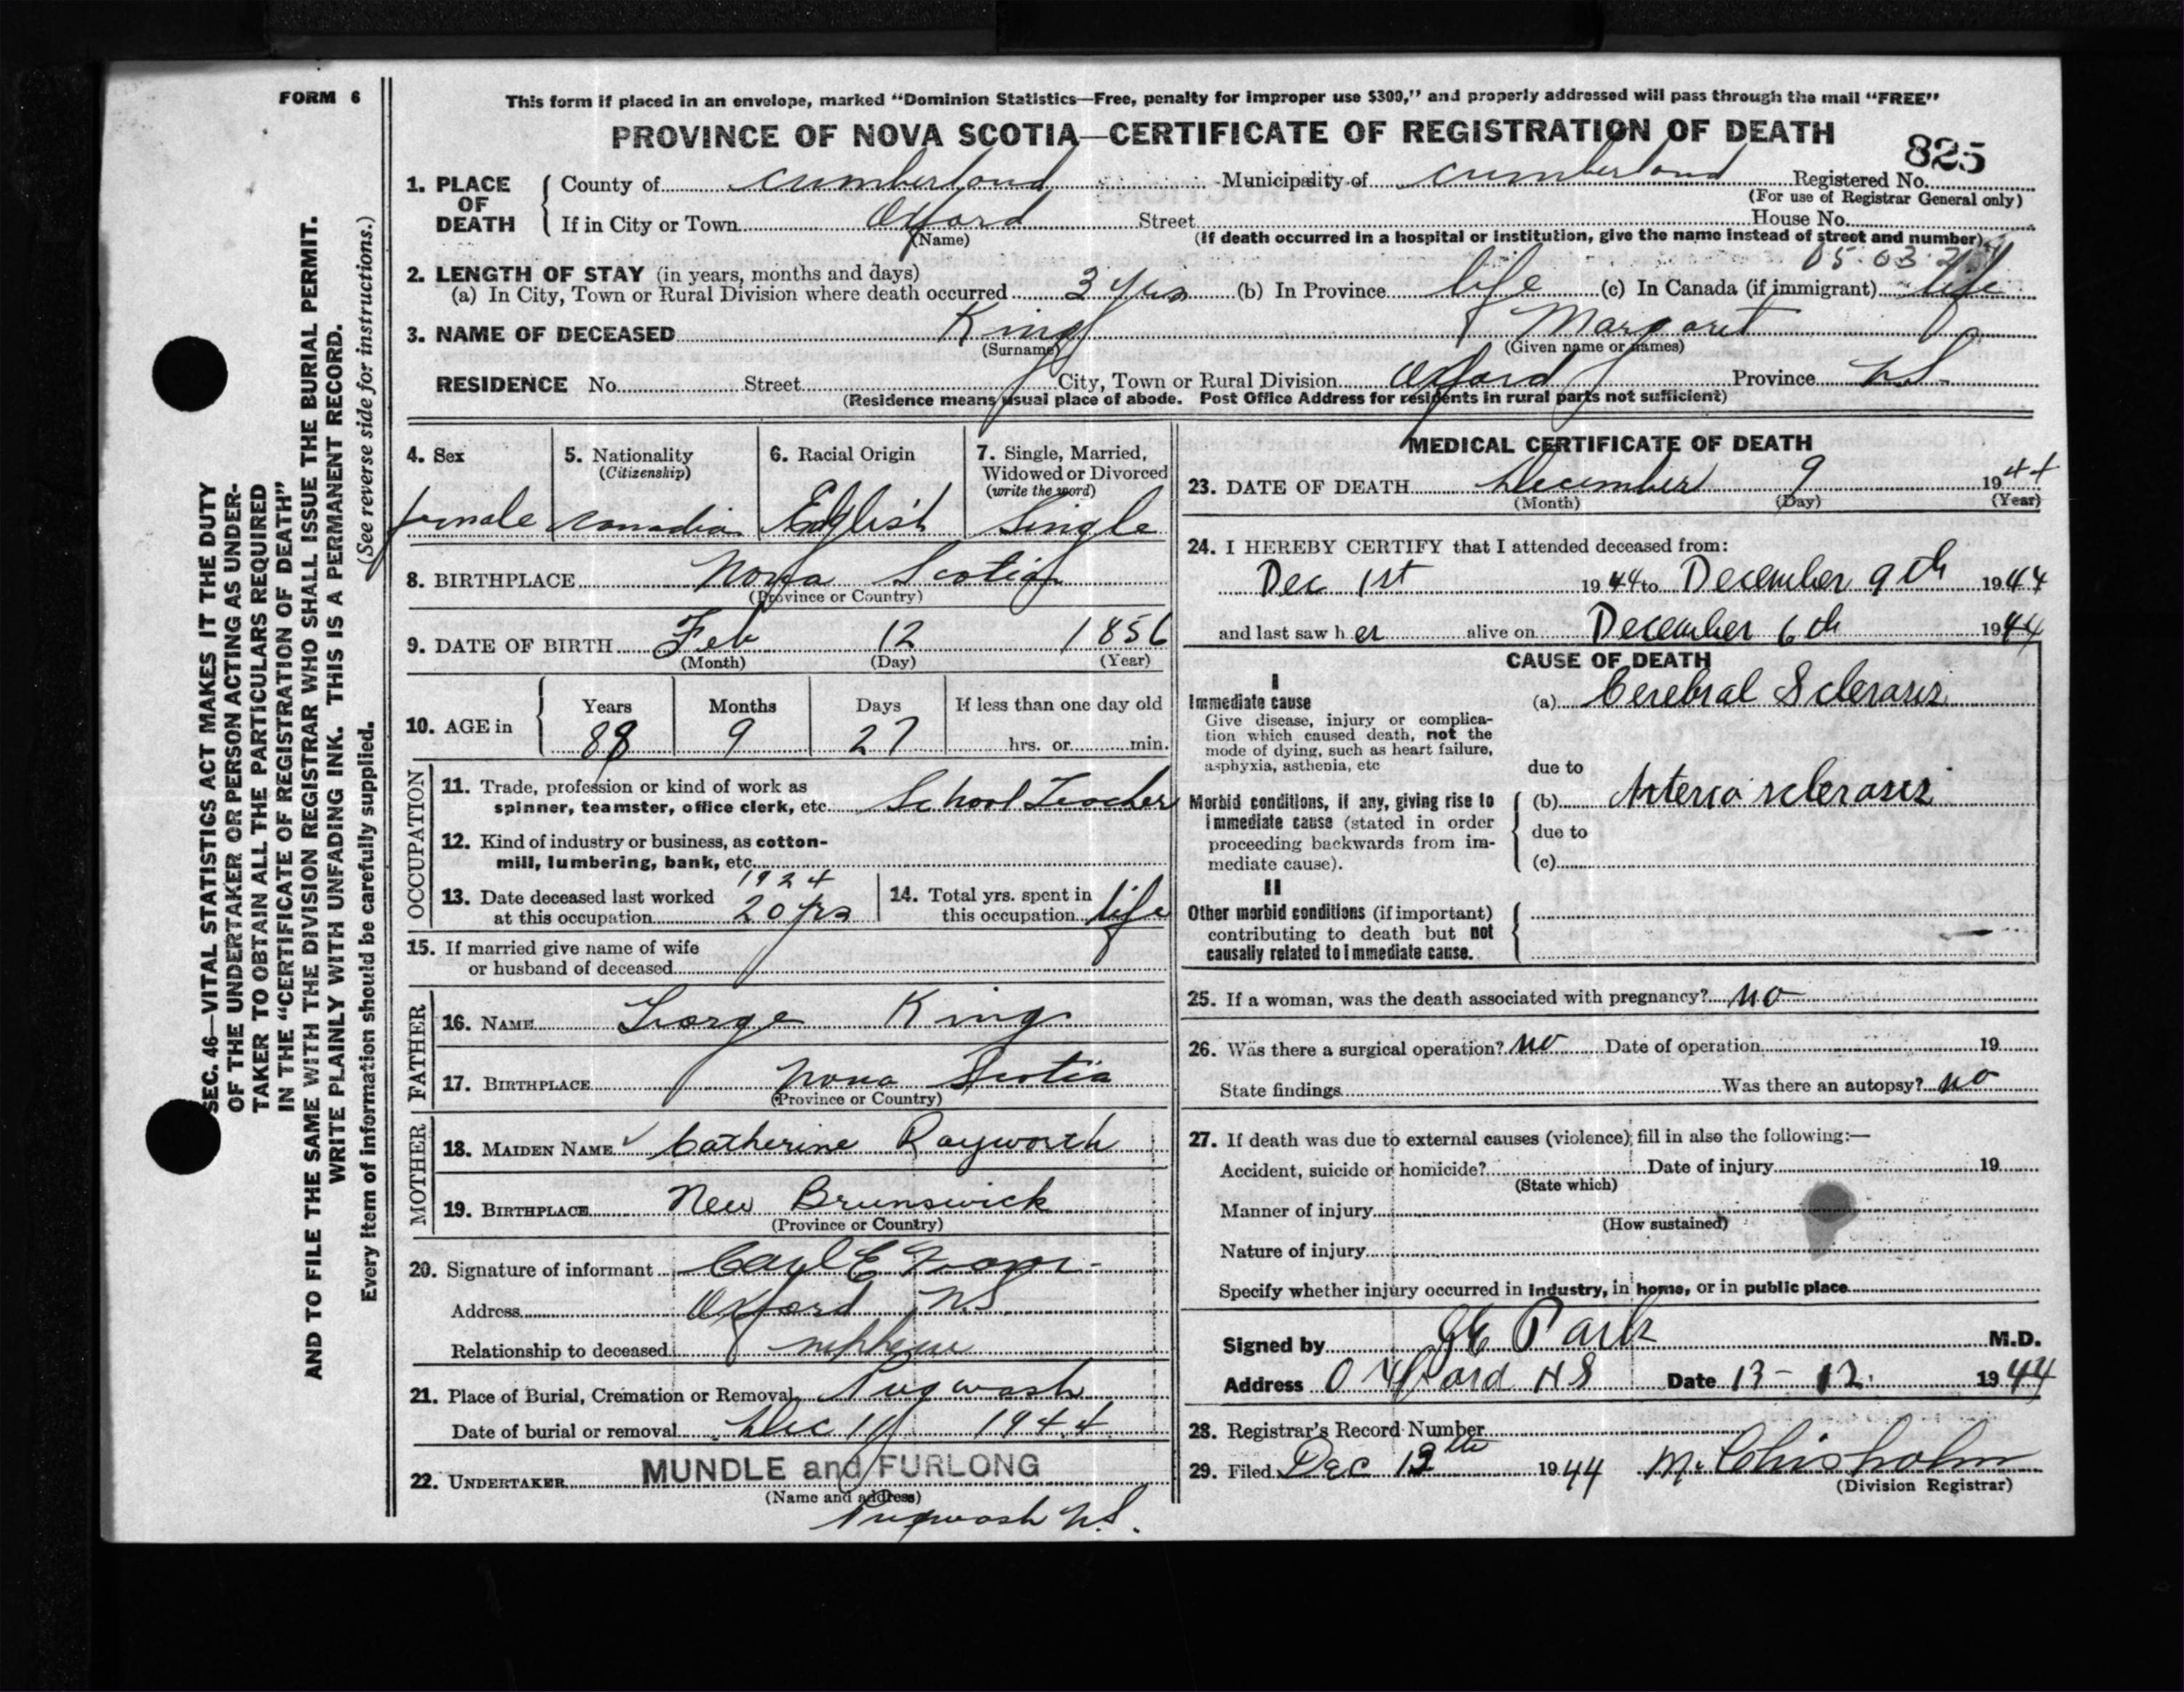 FORM 6
This form if placed in an envelope, marked "Dominion Statistics—Free, penalty for improper use $300," and properly addressed will pass through the mail "FREE"
PROVINCE OF NOVA SCOTIA—CERTIFICATE OF REGISTRATION OF DEATH
825
1. PLACE OF DEATH
County of Cumberland Municipality of Cumberland Registered No.
(For use of Registrar General only)
If in City or Town Oxford Street House No.
(Name) (If death occurred in a hospital or institution, give the name instead of street and number)
2. LENGTH OF STAY (in years, months and days)
05 03 2
(a) In City, Town or Rural Division where death occurred 3 yrs (b) In Province life (c) In Canada (if immigrant) life
3. NAME OF DECEASED King Margaret
(Surname) (Given name or names)
RESIDENCE No. Street City, Town or Rural Division Oxford Province N.S.
(Residence means usual place of abode. Post Office Address for residents in rural parts not sufficient)
4. Sex female
5. Nationality (Citizenship) Canadian
6. Racial Origin English
7. Single, Married, Widowed or Divorced (write the word) Single
8. BIRTHPLACE Nova Scotia
(Province or Country)
9. DATE OF BIRTH Feb 12 1856
(Month) (Day) (Year)
10. AGE in Years Months Days If less than one day old
88 9 27 hrs. or min.
OCCUPATION
11. Trade, profession or kind of work as
spinner, teamster, office clerk, etc. School Teacher
12. Kind of industry or business, as cotton-
mill, lumbering, bank, etc.
13. Date deceased last worked 1924
at this occupation 20 yrs
14. Total yrs. spent in
this occupation life
15. If married give name of wife
or husband of deceased
FATHER
16. NAME George King
17. BIRTHPLACE Nova Scotia
(Province or Country)
MOTHER
18. MAIDEN NAME ✓ Catherine Rayworth
19. BIRTHPLACE New Brunswick
(Province or Country)
20. Signature of informant Carl E
Address Oxford N.S
Relationship to deceased nephew
21. Place of Burial, Cremation or Removal Pugwash
Date of burial or removal Dec 11 1944
22. UNDERTAKER MUNDLE and FURLONG
(Name and address)
Pugwash N.S.
MEDICAL CERTIFICATE OF DEATH
23. DATE OF DEATH December 9 1944
(Month) (Day) (Year)
24. I HEREBY CERTIFY that I attended deceased from:
Dec 1st 1944 to December 9th 1944
and last saw her alive on December 6th 1944
CAUSE OF DEATH
I
Immediate cause (a) Cerebral Sclerosis
Give disease, injury or complica-
tion which caused death, not the
mode of dying, such as heart failure,
asphyxia, asthenia, etc
due to
Morbid conditions, if any, giving rise to
immediate cause (stated in order
proceeding backwards from im-
mediate cause).
(b) Arterio sclerosis
due to
(c)
II
Other morbid conditions (if important)
contributing to death but not
causally related to immediate cause.
25. If a woman, was the death associated with pregnancy? no
26. Was there a surgical operation? no Date of operation 19
State findings Was there an autopsy? no
27. If death was due to external causes (violence) fill in also the following:—
Accident, suicide or homicide? Date of injury 19
(State which)
Manner of injury
(How sustained)
Nature of injury
Specify whether injury occurred in industry, in home, or in public place
Signed by Park M.D.
Address Oxford NS Date 13-12 1944
28. Registrar's Record Number
29. Filed Dec 13th 1944 M. Chisholm
(Division Registrar)
SEC. 46—VITAL STATISTICS ACT MAKES IT THE DUTY
OF THE UNDERTAKER OR PERSON ACTING AS UNDER-
TAKER TO OBTAIN ALL THE PARTICULARS REQUIRED
IN THE "CERTIFICATE OF REGISTRATION OF DEATH"
AND TO FILE THE SAME WITH THE DIVISION REGISTRAR WHO SHALL ISSUE THE BURIAL PERMIT.
WRITE PLAINLY WITH UNFADING INK. THIS IS A PERMANENT RECORD.
Every item of information should be carefully supplied. (See reverse side for instructions.)